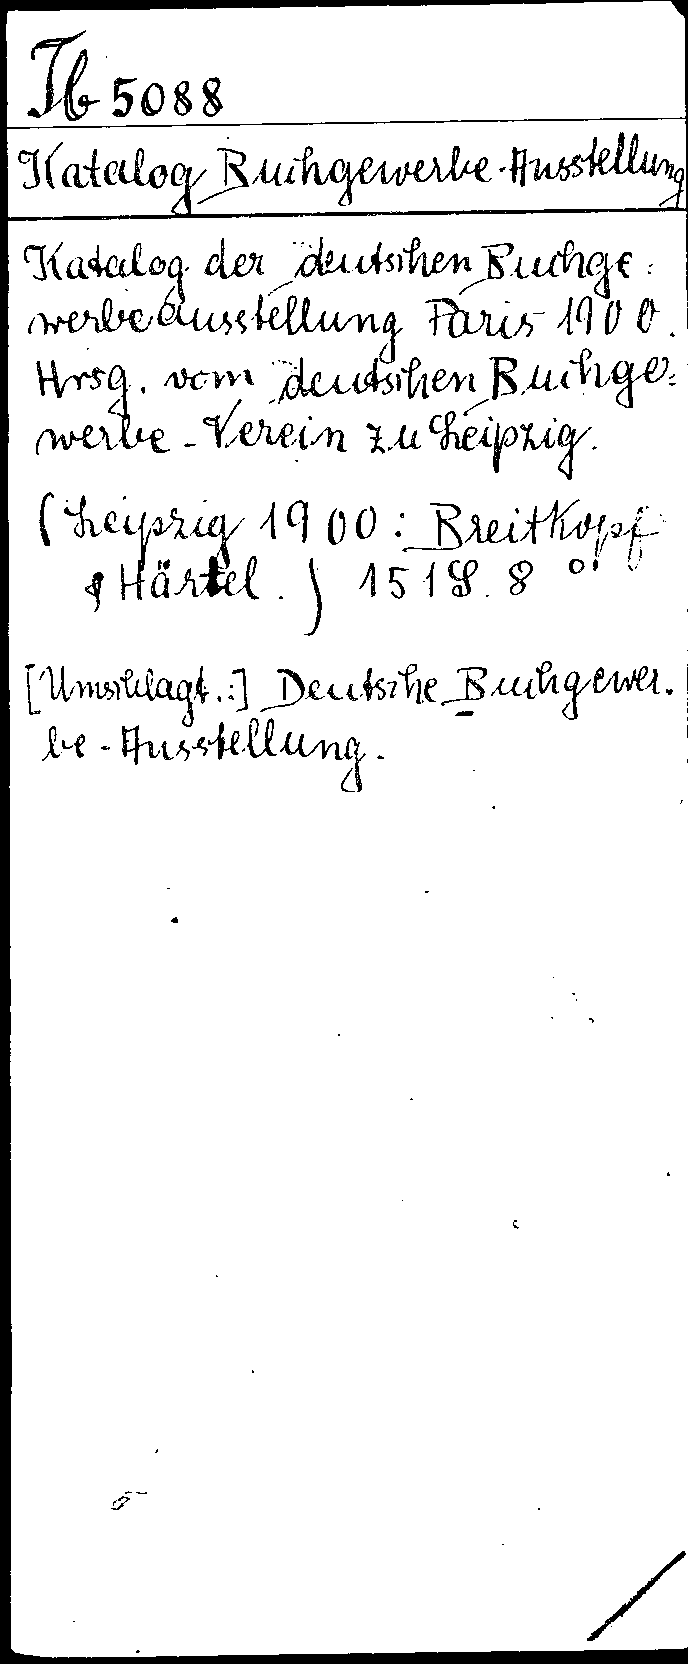 Tb 5088
Katalog Buchgewerbe-Ausstellung
Katalog der deutschen Buchge=
werbeausstellung Paris 1900.
Hrsg. vom deutschen Buchge=
werbe-Verein zu Leipzig.
(Leipzig 1900: Breitkopf
& Härtel.) 151 S. 8°.
[Umschlagt.:] Deutsche Buchgewer-
be-Ausstellung.